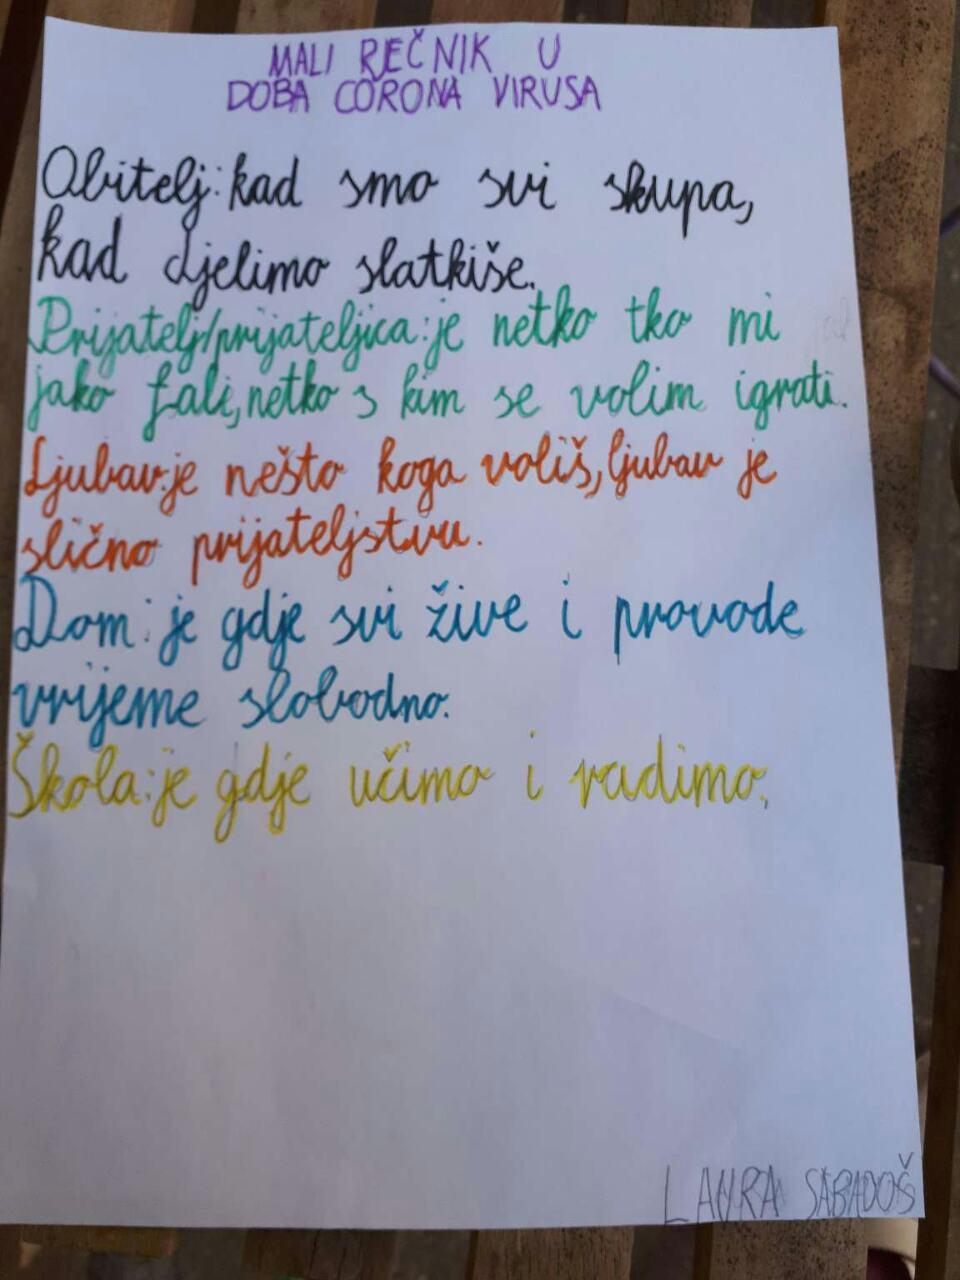 MALI RJEČNIK U
DOBA CORONA VIRUSA
Obitelj: kad smo svi skupa,
kad djelimo slatkiše.
Prijatelj/prijateljica: je netko tko mi
jako fali, netko s kim se volim igrati.
Ljubav: je nešto koga voliš, ljubav je
slično prijateljstvu.
Dom: je gdje svi žive i provode
vrijeme slobodno.
Škola: je gdje učimo i radimo.
LAURA SABADOŠ